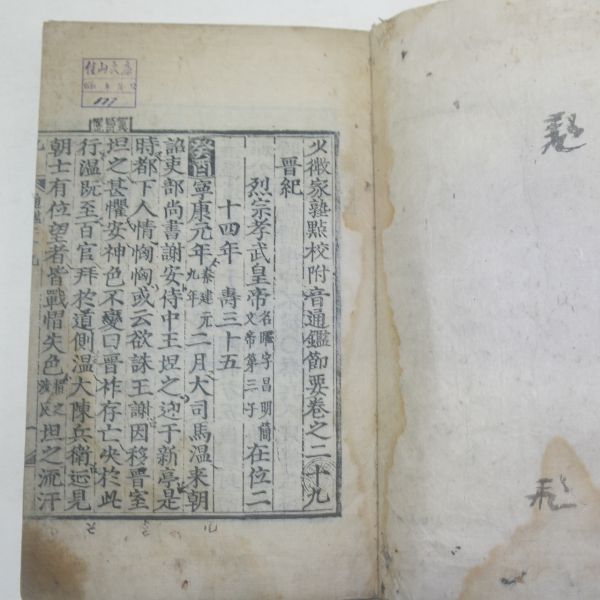 少微家塾點校附音通鑑節要卷之二十九
晋紀
烈宗孝武皇帝名曜字昌明簡文帝第三子在位二
十四年 壽三十五
癸酉寧康元年秦建元九年二月大司馬温来朝
詔吏部尚書謝安侍中王坦之迎于新亭是
時都下人情恟恟或云欲誅王謝因移晋室
坦之甚懼安神色不變曰晋祚存亡決於此
行温既至百官拜於道側温大陳兵衛延見
朝士有位望者皆戰慴失色坦之流汗